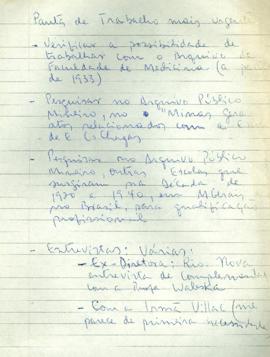 Pauta de Trabalho mais urgente
- Verificar a possibilidade de
trabalhar com o Arquivo da
Faculdade de Medicina (a
de 1933)
- Pesquisar no Arquivo Público
Mineiro, no "Minas Gerais
atos relacionados com a
de E. C. Chagas
- Pesquisar no Arquivo Público
Mineiro, outras Escolas que
surgiram na década de
1930 a 1940, em M. Gerais
no Brasil, para qualificação
profissional
- Entrevistas: Várias:
- Ex-Diretora: Rio. Nova
entrevista de complementar
com a Profa. Waleska
- Com a Irmã Villac (me
parece de primeira necessidade